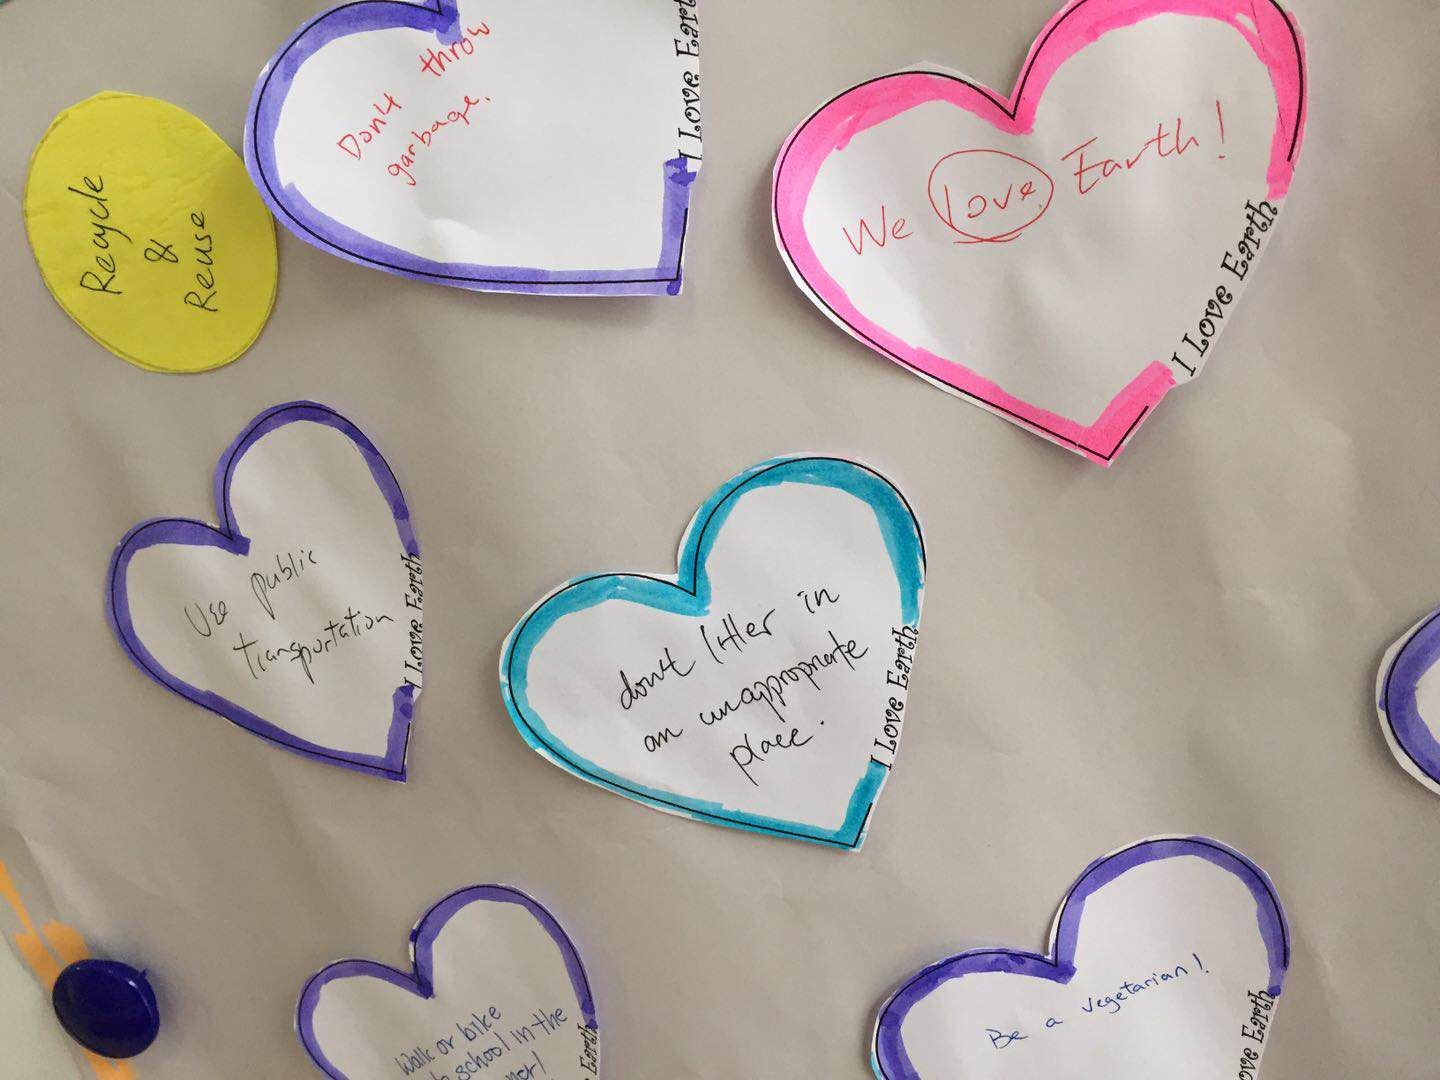 Don't throw
garbage.
I Love Earth
We love Earth!
I Love Earth
Recycle
&
Reuse
Use public
transportation
I Love Earth
don't litter in
an unappropriate
place.
I Love Earth
Walk or bike
school in the
Earth
Be a vegetarian!
Love Earth